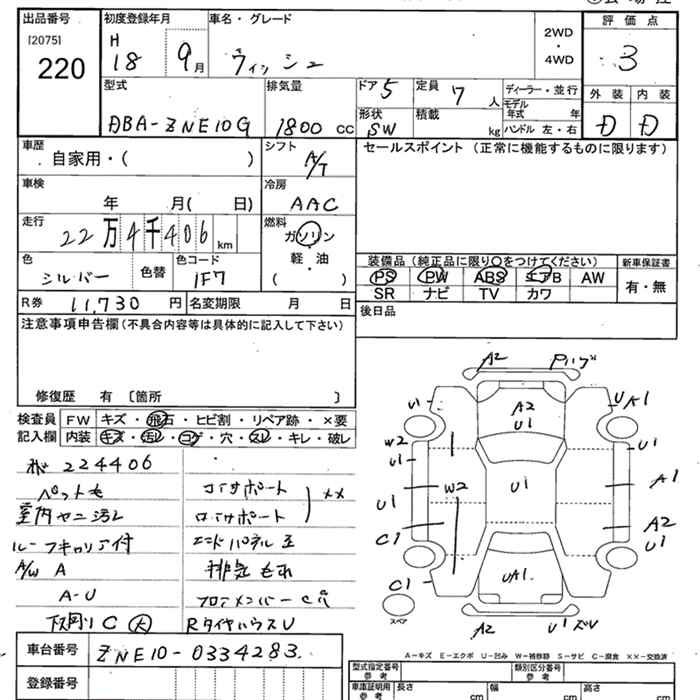 出品番号
[2075]
220
初度登録年月
H
18 9月
車名・グレード
ウィッシュ
2WD
・
4WD
評価点
3
外装 内装
D D
型式
DBA-ZNE10G
排気量
1800 cc
ドア 5
形状
SW
定員
7 人
積載
kg
ディーラー・並行
モデル
年式 年
ハンドル 左・右
車歴
自家用・( )
シフト
A/T
車検
年 月( 日)
冷房
AAC
走行
22万4千406 km
燃料
ガソリン
軽・油
( )
色
シルバー
色替
色コード
1F7
R券 11,730 円
名変期限 月 日
セールスポイント (正常に機能するものに限ります)
装備品 (純正品に限り○をつけてください)
PS PW ABS エアB AW
SR ナビ TV カワ
新車保証書
有・無
後日品
注意事項申告欄(不具合内容等は具体的に記入して下さい)
修復歴 有 〔箇所 〕
検査員
記入欄
FW キズ・飛石・ヒビ割・リペア跡・×要
内装 キズ・汚レ・コゲ・穴・スレ・キレ・破レ
224406
ペット毛
室内ヤニ汚レ
ルーフキャリア付
A/W A
A-U
下廻り C 大
コアサポート
ロアサポート
××
エンドパネル
排気もれ
フロアメンバーC穴
RタイヤハウスU
車台番号 ZNE10-0334283
登録番号
A2
A2
U1
UA1
W2
U1
U1
U1
U1
A1
W2
U1
C1
A2
U1
C1
UA1
A2
U1
スペア
A-キズ E-エクボ U-凹み W-補修跡 S-サビ C-腐食 ××-交換済
型式指定番号
参考
類別区分番号
参考
車庫証明用
参考
長さ cm
幅 cm
高さ cm